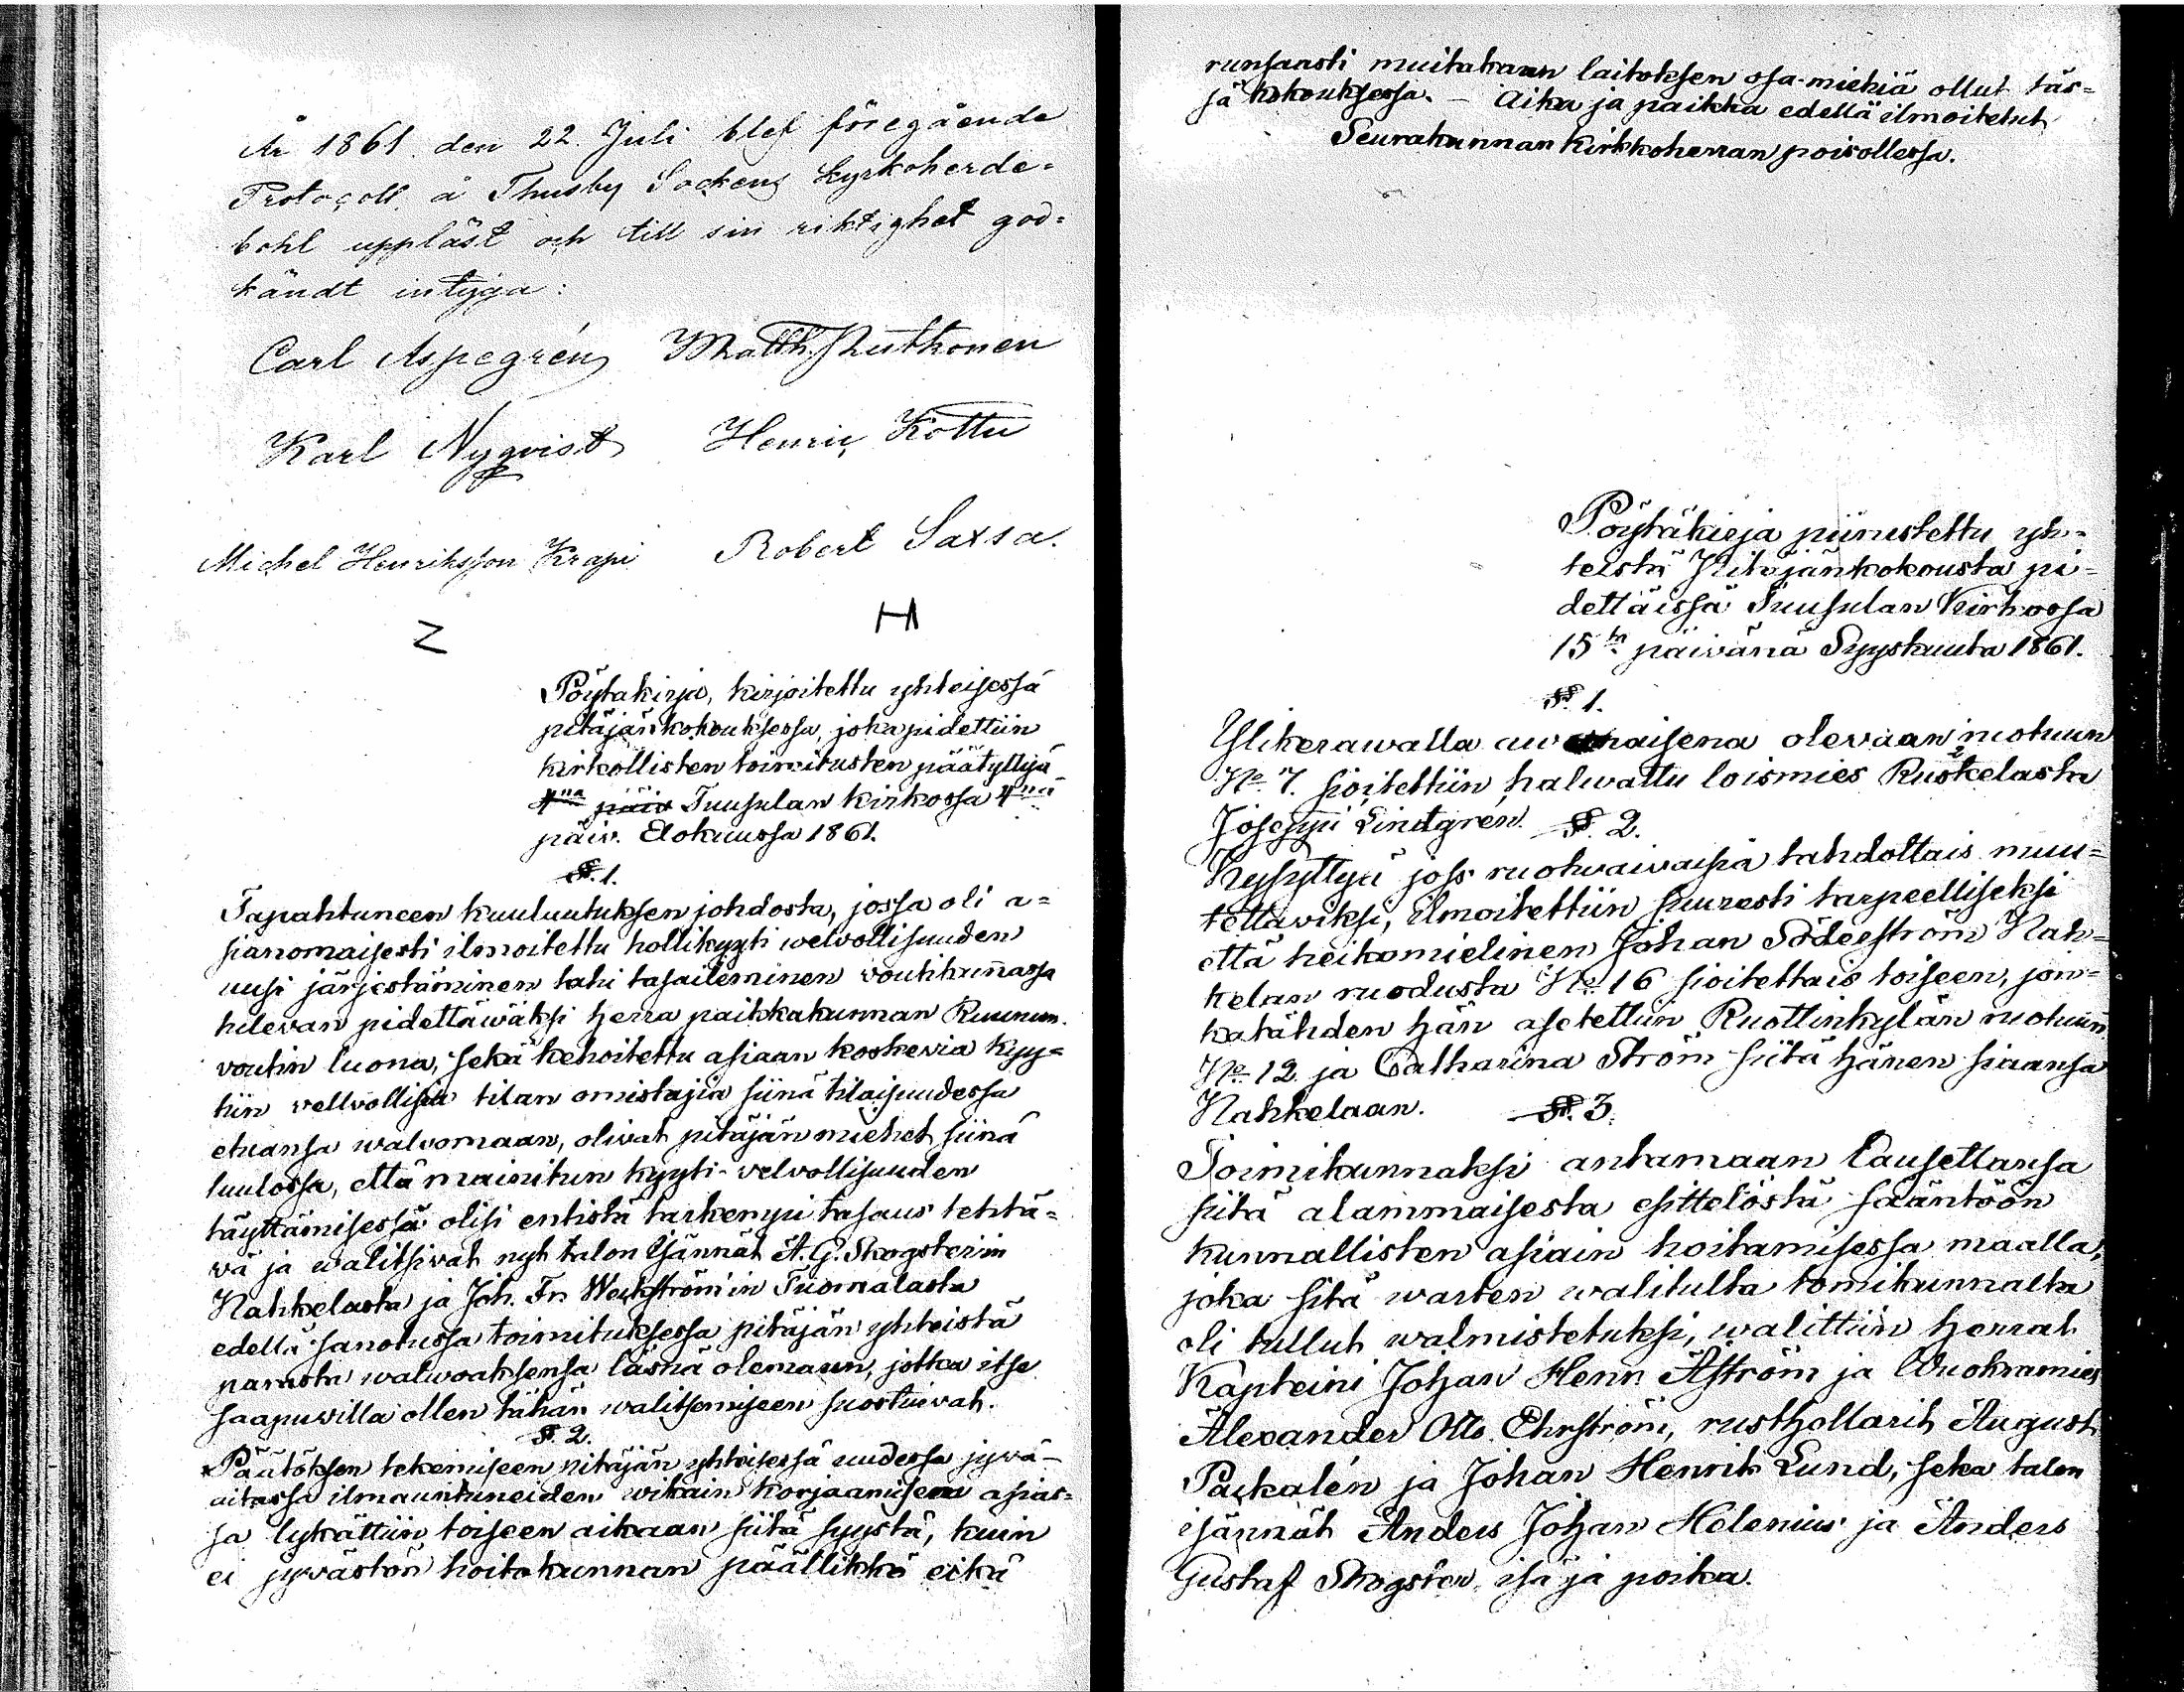 År 1861 den 22. Juli blef föregående
Protocoll å Thusby Sockens Kyrkoherde-
bohl uppläst och till sin riktighet god-
kändt intyga:
Carl Aspegrén Matth. Ruthonen
Karl Nyqvist Henric Kottu
Michel Henriksson Krapi Robert Saxsa.
Z H
Pöytäkirja, kirjoitettu yhteisessä
pitäjänkokouksessa, joka pidettiin
kirkollisten toimitusten päätyttyä
4nä päiv Tuusulan kirkossa 4nä
päiv. Elokuussa 1861.
§. 1.
Tapahtuneen kuuluutuksen johdosta, jossa oli a-
sianomaisesti ilmoitettu hollikyyti welvollisuuden
uusi järjestäminen tahi tasaileminen voutikunnassa
tulevan pidettäwäksi Herra paikkakunnan Ruunun-
voutin luona, sekä kehoitettu asiaan koskevia kyy-
tiin vellvollisia tilan omistajia siinä tilaisuudessa
etuansa walvomaan, olivat pitäjän miehet siinä
luulossa, että mainitun kyyti-velvollisuuden
täyttämisessä olisi entistä tarkempi tasaus tehtä-
vä ja walitsivat nyt talon isännät A. G. Skogsterin
Nahkelasta ja Joh. Fr. Weckström'in Tuomalasta
edellä sanotussa toimituksessa pitäjän yhteistä
parasta walwoaksensa läsnä olemaan, jotka itse
saapuvilla ollen tähän walitsemiseen suostuivat.
§. 2.
Päätöksen tekemiseen pitäjän yhteisessä uudessa jyvä-
aitassa ilmauntuneiden wikain korjaamisen asias-
sa lykättiin toiseen aikaan siitä syystä, kuin
ei jyvästön hoitokunnan päällikkö eikä
runsaasti muitakaan laitoksen osa-miehiä ollut täs-
sä kokouksessa. – Aika ja paikka edellä ilmoitetut
Seurakunnan Kirkkoherran poisollessa.
Pöytäkirja piirustettu yh-
teistä Pitäjänkokousta pi-
dettäissä Tuusulan Kirkossa
15ta päivänä Syyskuuta 1861.
§. 1.
Ylikerawalla awonaisena olevaan ruotuun
No 7. sioitettiin halwattu loismies Ruskelasta
Joseppi Lindgrén. §. 2.
Kysyttyä joss ruotuvaivaisia tahdottais muu-
tettaviksi, ilmoitettiin suuresti tarpeelliseksi
että heikomielinen Johan Söderström Nah-
kelan ruodusta No 16 sioitettais toiseen, jon-
katähden hän asetettiin Ruottinkylän ruotuun
No 12 ja Catharina Ström siitä hänen siaansa
Nahkelaan. §. 3.
Toimikunnaksi antamaan Lausettansa
siitä alammaisesta esittelöstä sääntöön
kunnallisten asiain hoitamisessa maalla,
joka sitä warten walitulta tomikunnalta
oli tullut walmistetuksi, walittiin Herrat
Kapteini Johan Henr. Åström ja Wuokramies
Alexander Otto Ehrström, rusthollarit August
Paikalén ja Johan Henrik Lund, seka talon
isännät Anders Johan Helenius ja Anders
Gustaf Skogster, isä ja poika.